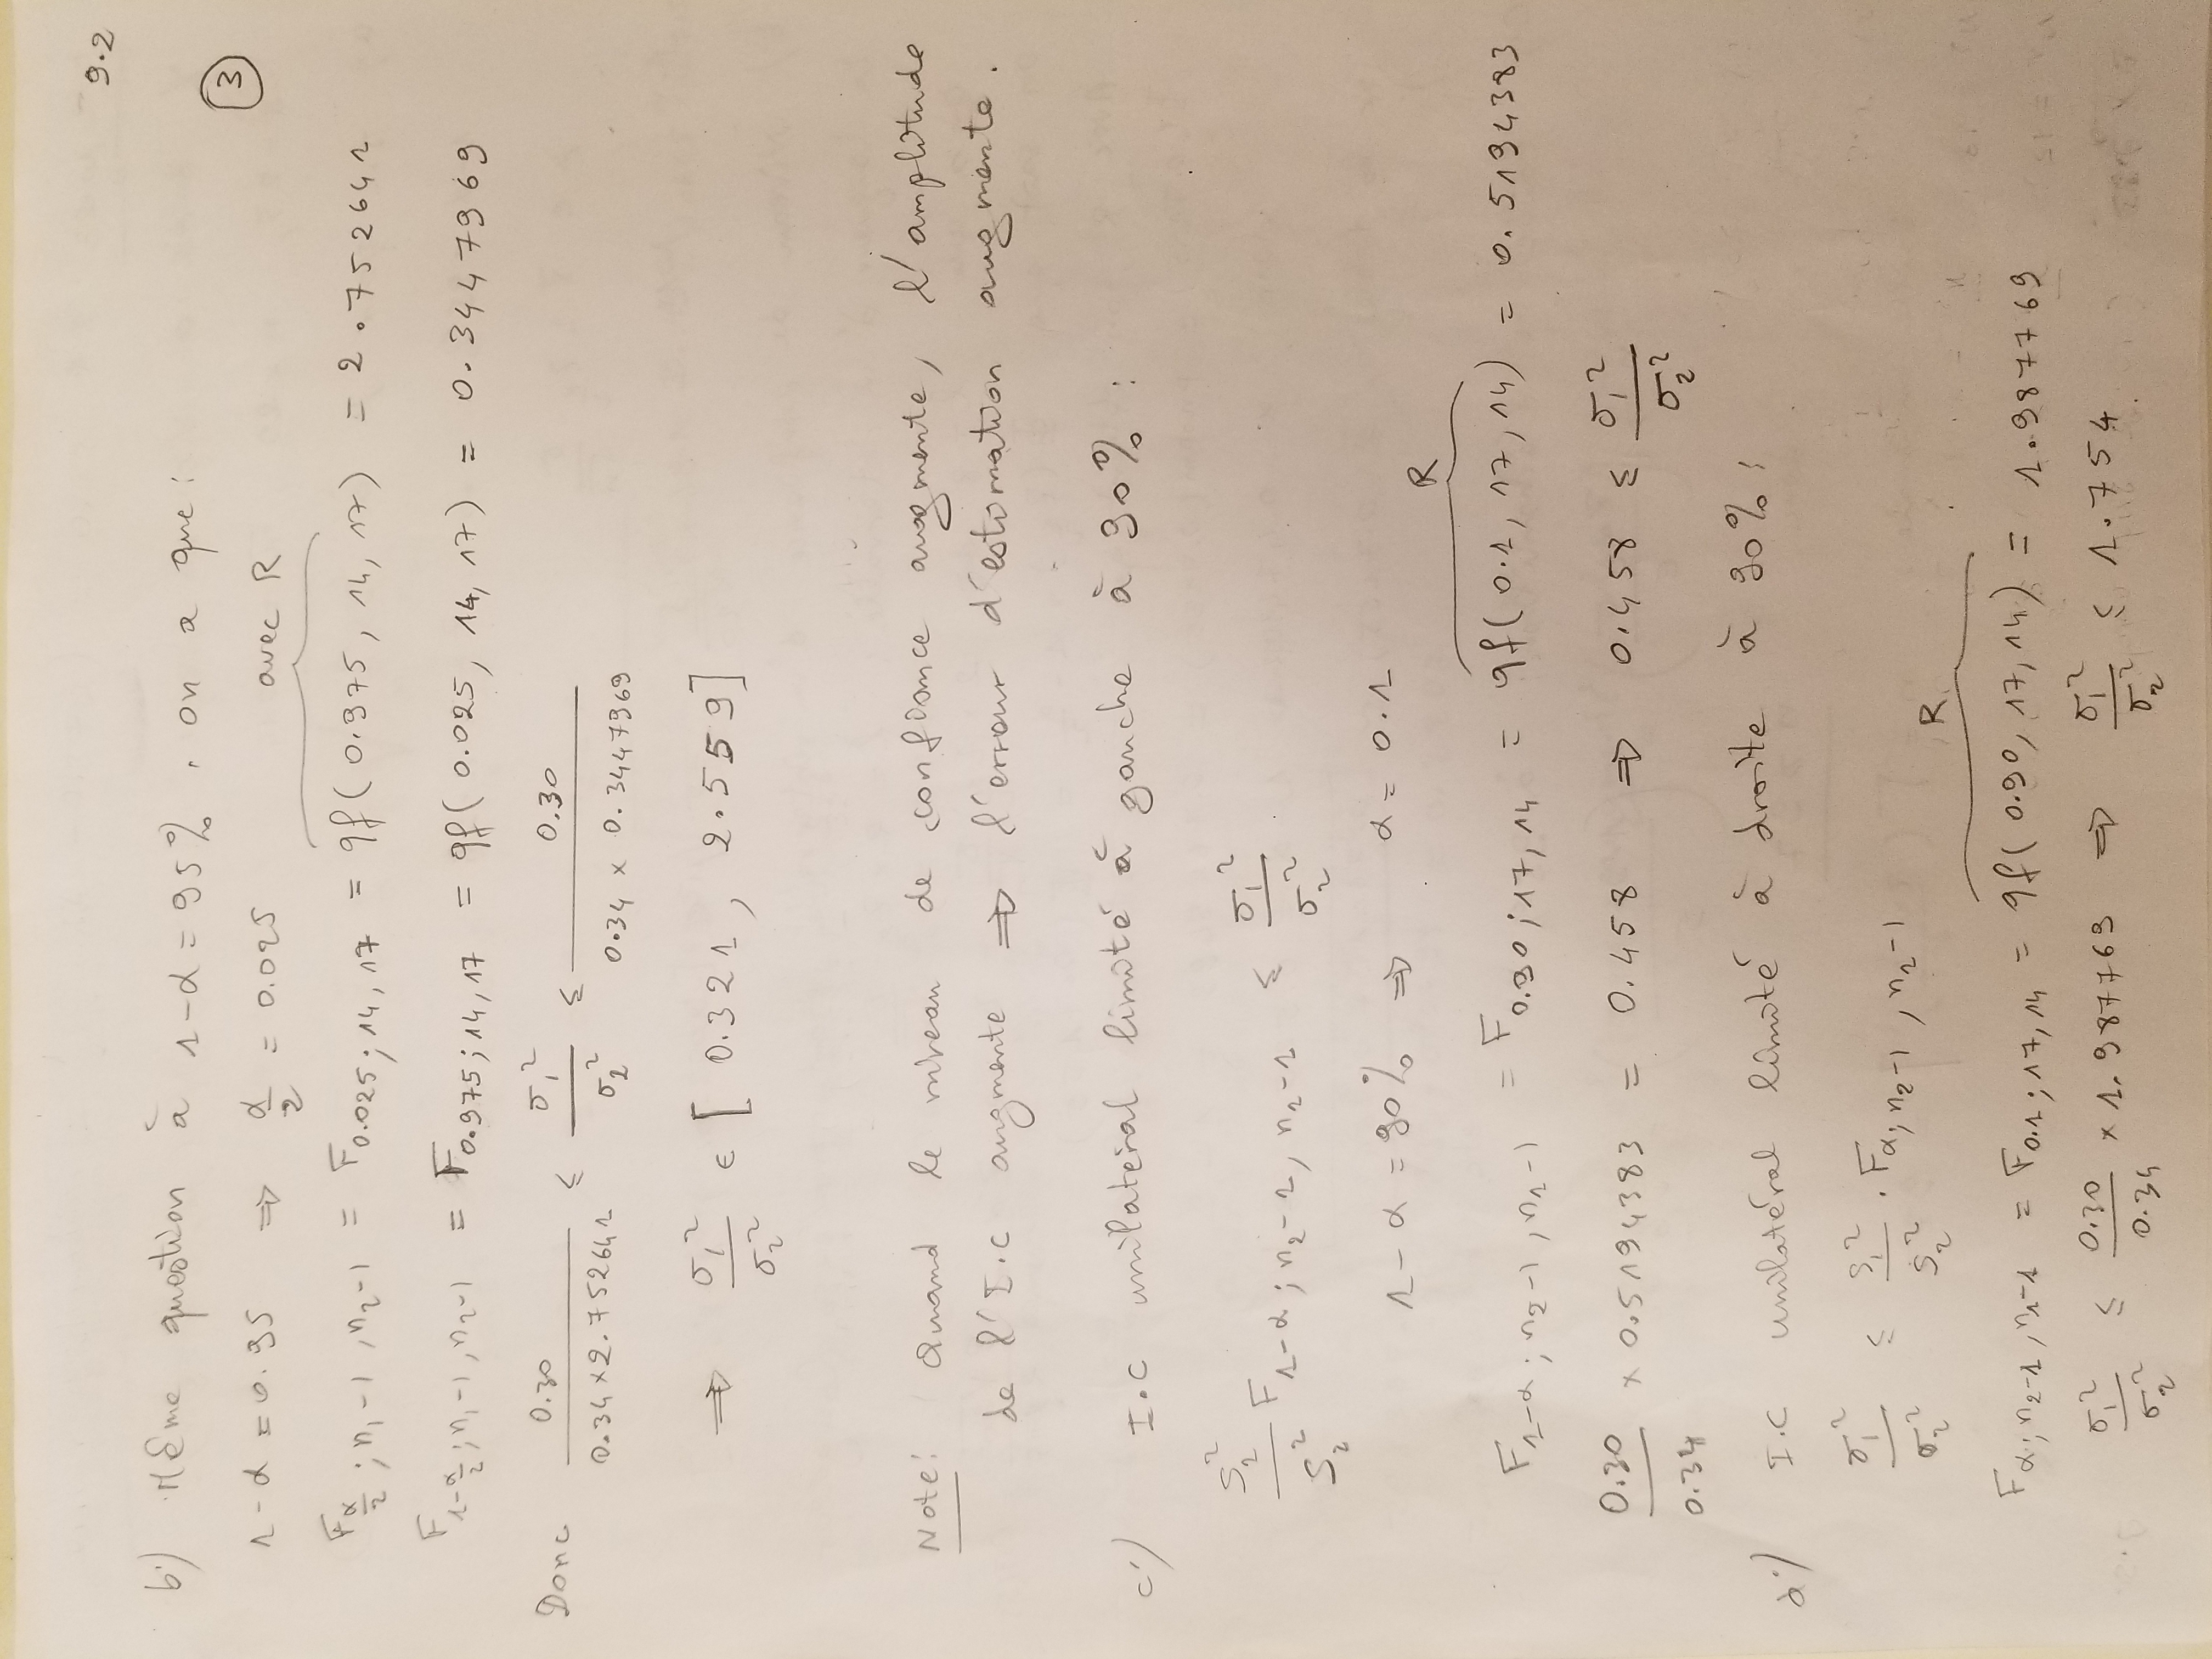 9.2
b) Même question à 1-α = 95%, on a que :
3
1-α = 0.95 ⇒ α/2 = 0.025 avec R
F α/2 ; n₁-1, n₂-1 = F 0.025; 14, 17 = qf(0.975, 14, 17) = 2.752641
F 1-α/2 ; n₁-1, n₂-1 = F 0.975; 14, 17 = qf(0.025, 14, 17) = 0.3447969
Donc 0.30 / 0.34 × 2.752641 ≤ σ₁² / σ₂² ≤ 0.30 / 0.34 × 0.3447969
⇒ σ₁² / σ₂² ∈ [0.321, 2.559]
Note: Quand le niveau de confiance augmente, l'amplitude
de l'I.C augmente ⇒ l'erreur d'estimation augmente.
c) I.C unilatéral limité à gauche à 90% :
S₁² / S₂² F 1-α ; n₂-1, n₁-1 ≤ σ₁² / σ₂²
1-α = 90% ⇒ α = 0.1
R
F 1-α ; n₂-1, n₁-1 = F 0.90; 17, 14 = qf(0.1, 17, 14) = 0.5194383
0.30 / 0.34 × 0.5194383 = 0.458 ⇒ 0.458 ≤ σ₁² / σ₂²
d) I.C unilatéral limité à droite à 90% :
σ₁² / σ₂² ≤ S₁² / S₂² . F α; n₂-1, n₁-1
R
F α; n₂-1, n₁-1 = F 0.1; 17, 14 = qf(0.90, 17, 14) = 1.987769
σ₁² / σ₂² ≤ 0.30 / 0.34 × 1.987769 ⇒ σ₁² / σ₂² ≤ 1.754